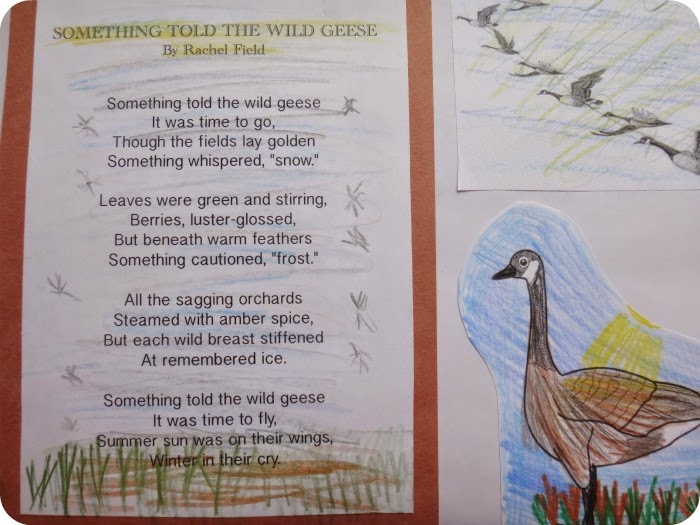 SOMETHING TOLD THE WILD GEESE
By Rachel Field
Something told the wild geese
It was time to go,
Though the fields lay golden
Something whispered, "snow."
Leaves were green and stirring,
Berries, luster-glossed,
But beneath warm feathers
Something cautioned, "frost."
All the sagging orchards
Steamed with amber spice,
But each wild breast stiffened
At remembered ice.
Something told the wild geese
It was time to fly,
Summer sun was on their wings,
Winter in their cry.